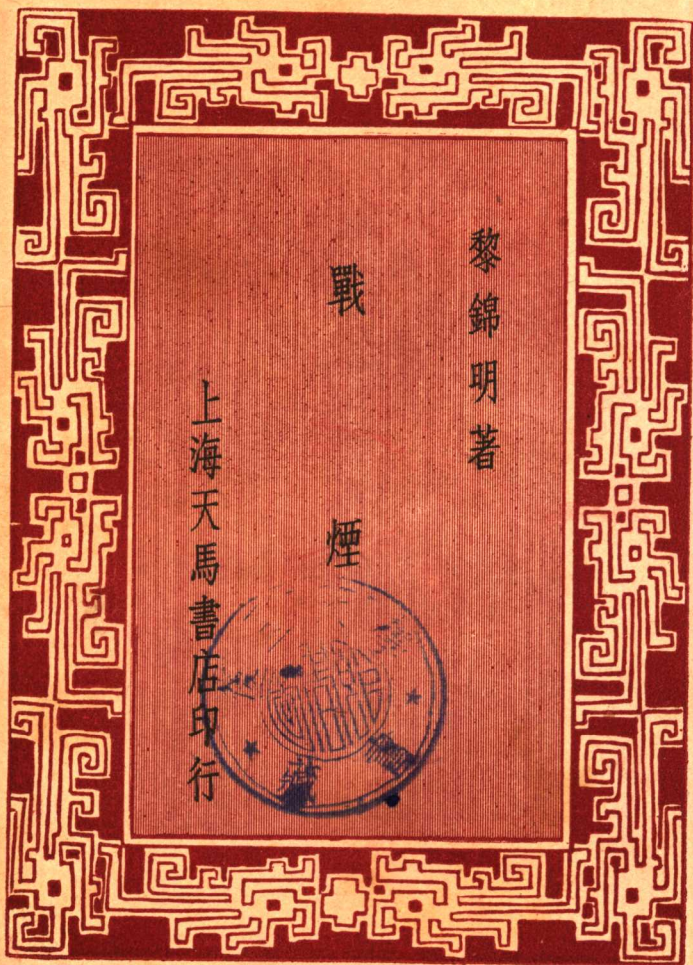 黎錦明著
戰煙
上海天馬書店印行